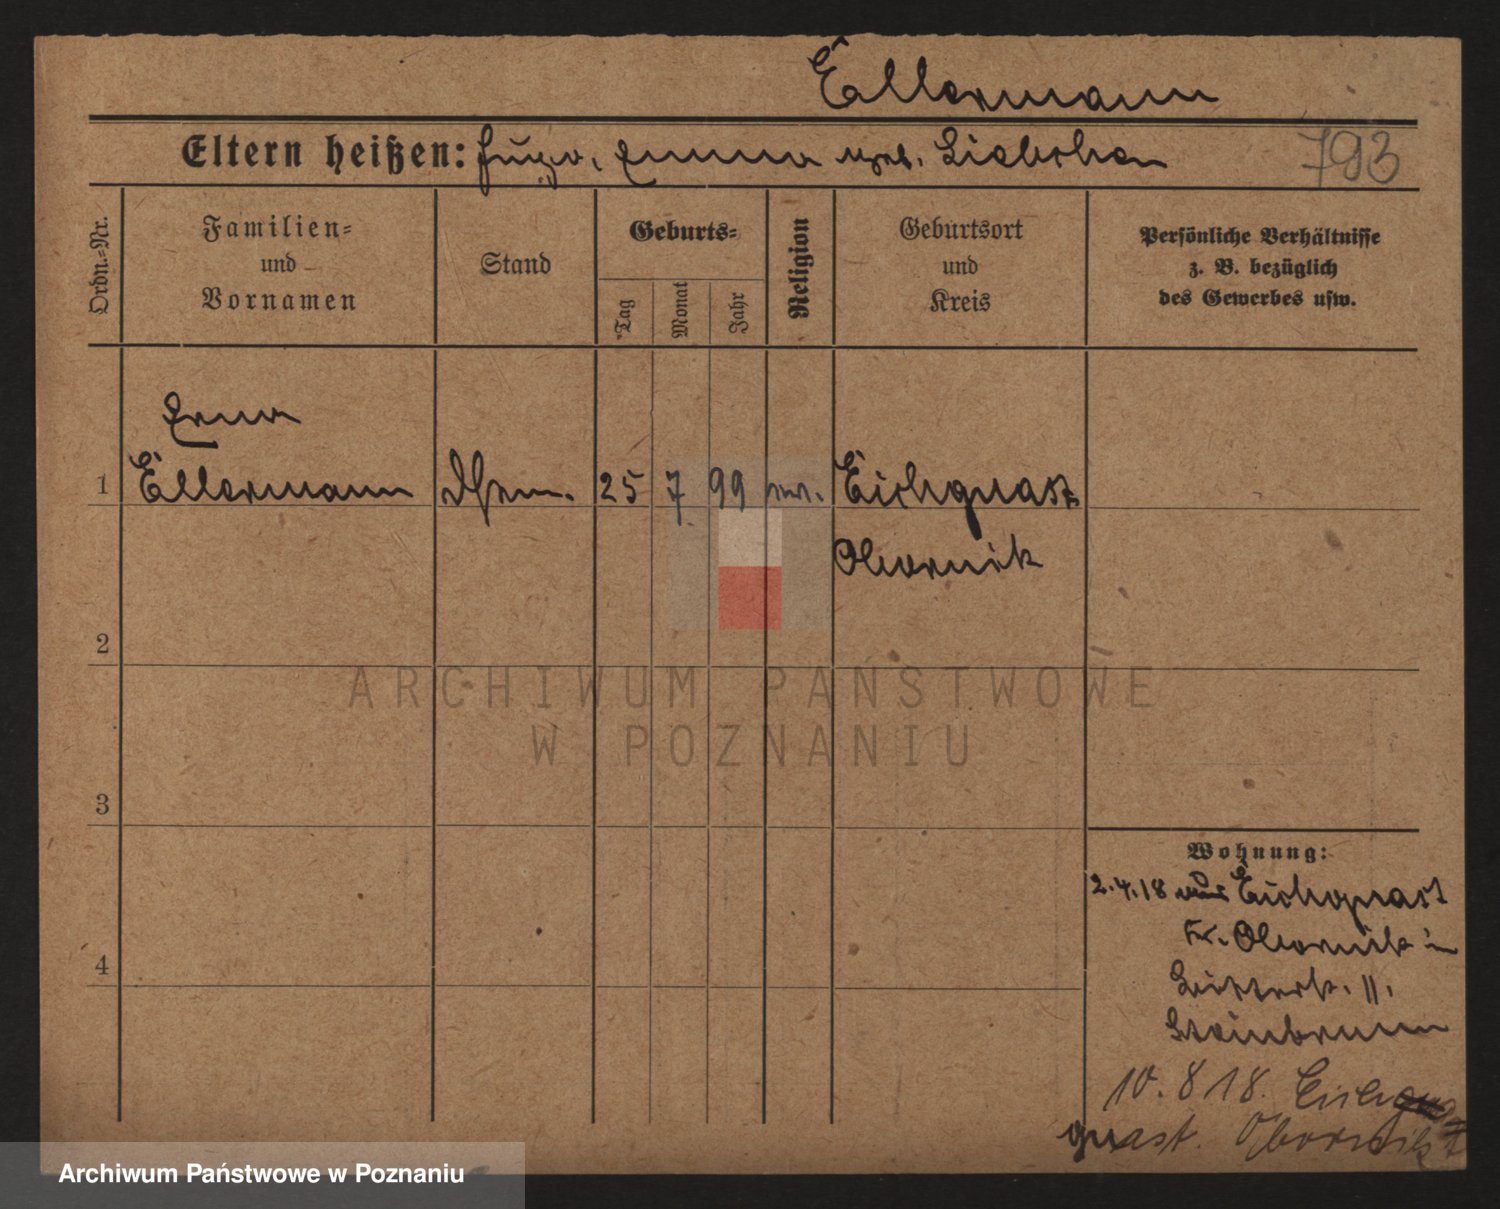 Ellermann
Eltern heißen: Hugo, Emma geb.
793
Ordn.-Nr.
Familien-
und
Vornamen
Stand
Geburts-
Tag
Monat
Jahr
Religion
Geburtsort
und
Kreis
Persönliche Verhältnisse
z. B. bezüglich
des Gewerbes usw.
Erna
1 Ellermann 25 7 99 ev. Eichquast
Obornik
2
ARCHIWUM PAŃSTWOWE
W POZNANIU
3
Wohnung:
2.4.18 aus Eichquast
Kr. Obornik in
4
11.
Steinbrunn
10.8 18.
quast. Obornik
Archiwum Państwowe w Poznaniu